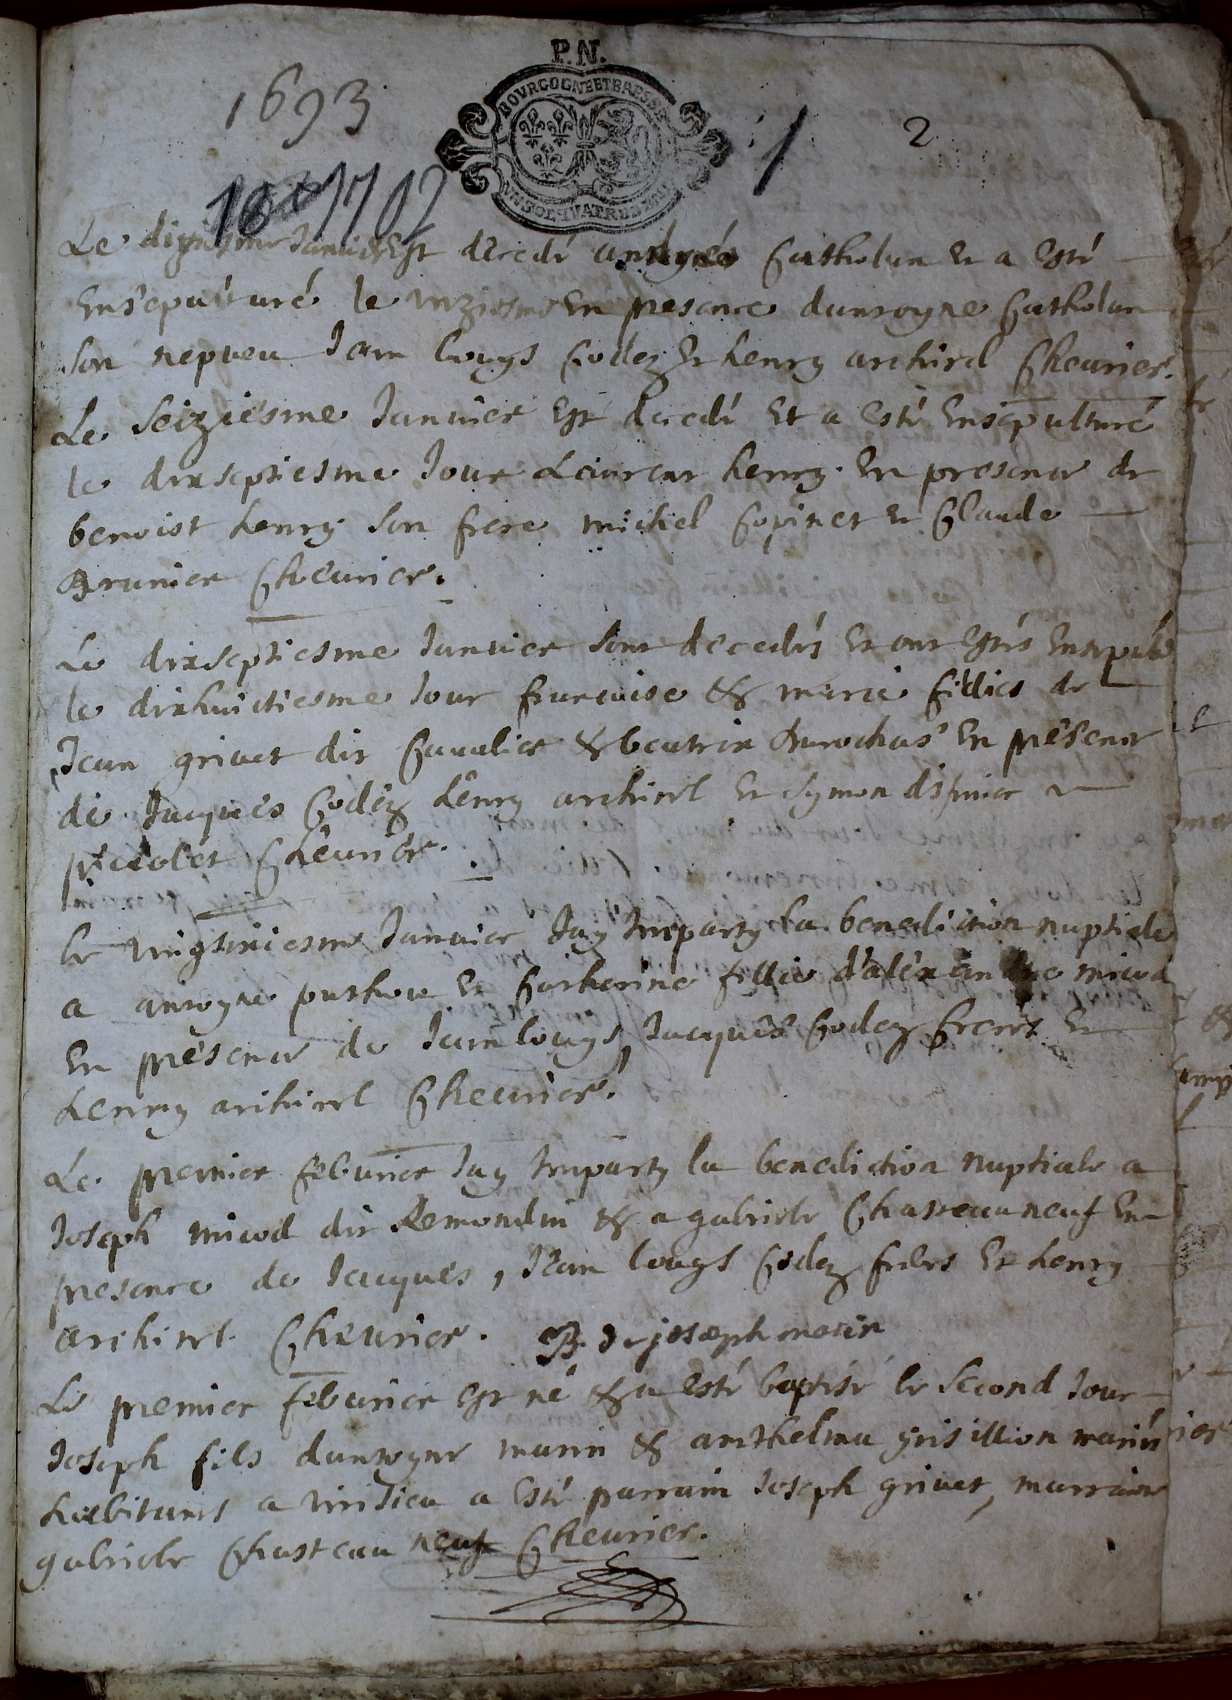 P.N.
BOVRGOGNE ET BRESSE
1693
1
2
1702
Le Januier Est decedé Cutholin Et a Esté
Ensepulturé le unziesme En presence danroyne Cutholin
son nepueu Jean louys Godez Et henry archirel Cheurier.
Le Seiziesme Januier Est decedé Et a Esté Ensepulturé
le dixseptiesme Jour Laurent henry En presence de
benoist henry son frere michel Copinet Et Claude
Brunier Cheurier.
Le dixseptiesme Januier sont decedés Et ont Estés
le dixhuictiesme Jour françoise & marie fillies de
Jean griuet dit Caualier & beatrix durochas En presence
de Jacques Godez henry archirel Et symon
Cheurier.
le Januier Jay Imparty la benediction nuptiale
a antoyne Et Catherine fillie d'alexandre micod
En presence de Jean louys, Jacques Godez freres Et
henry archirel Cheurier.
Le premier feburier Jay Imparty la benediction nuptiale a
Joseph micod dit Remondin & a gabriele Chasteauneuf En
presence de Jacques, Jean louys Godez freres Et henry
archirel Cheurier. B. de joseph morin
Le premier feburier Est né & a esté baptisé le second Jour
Joseph fils dantoyne murin & anthelma grisillion mariés
habitants a virisieu a Esté parrain Joseph griuet, marraine
gabriele Chasteau neuf Cheurier.